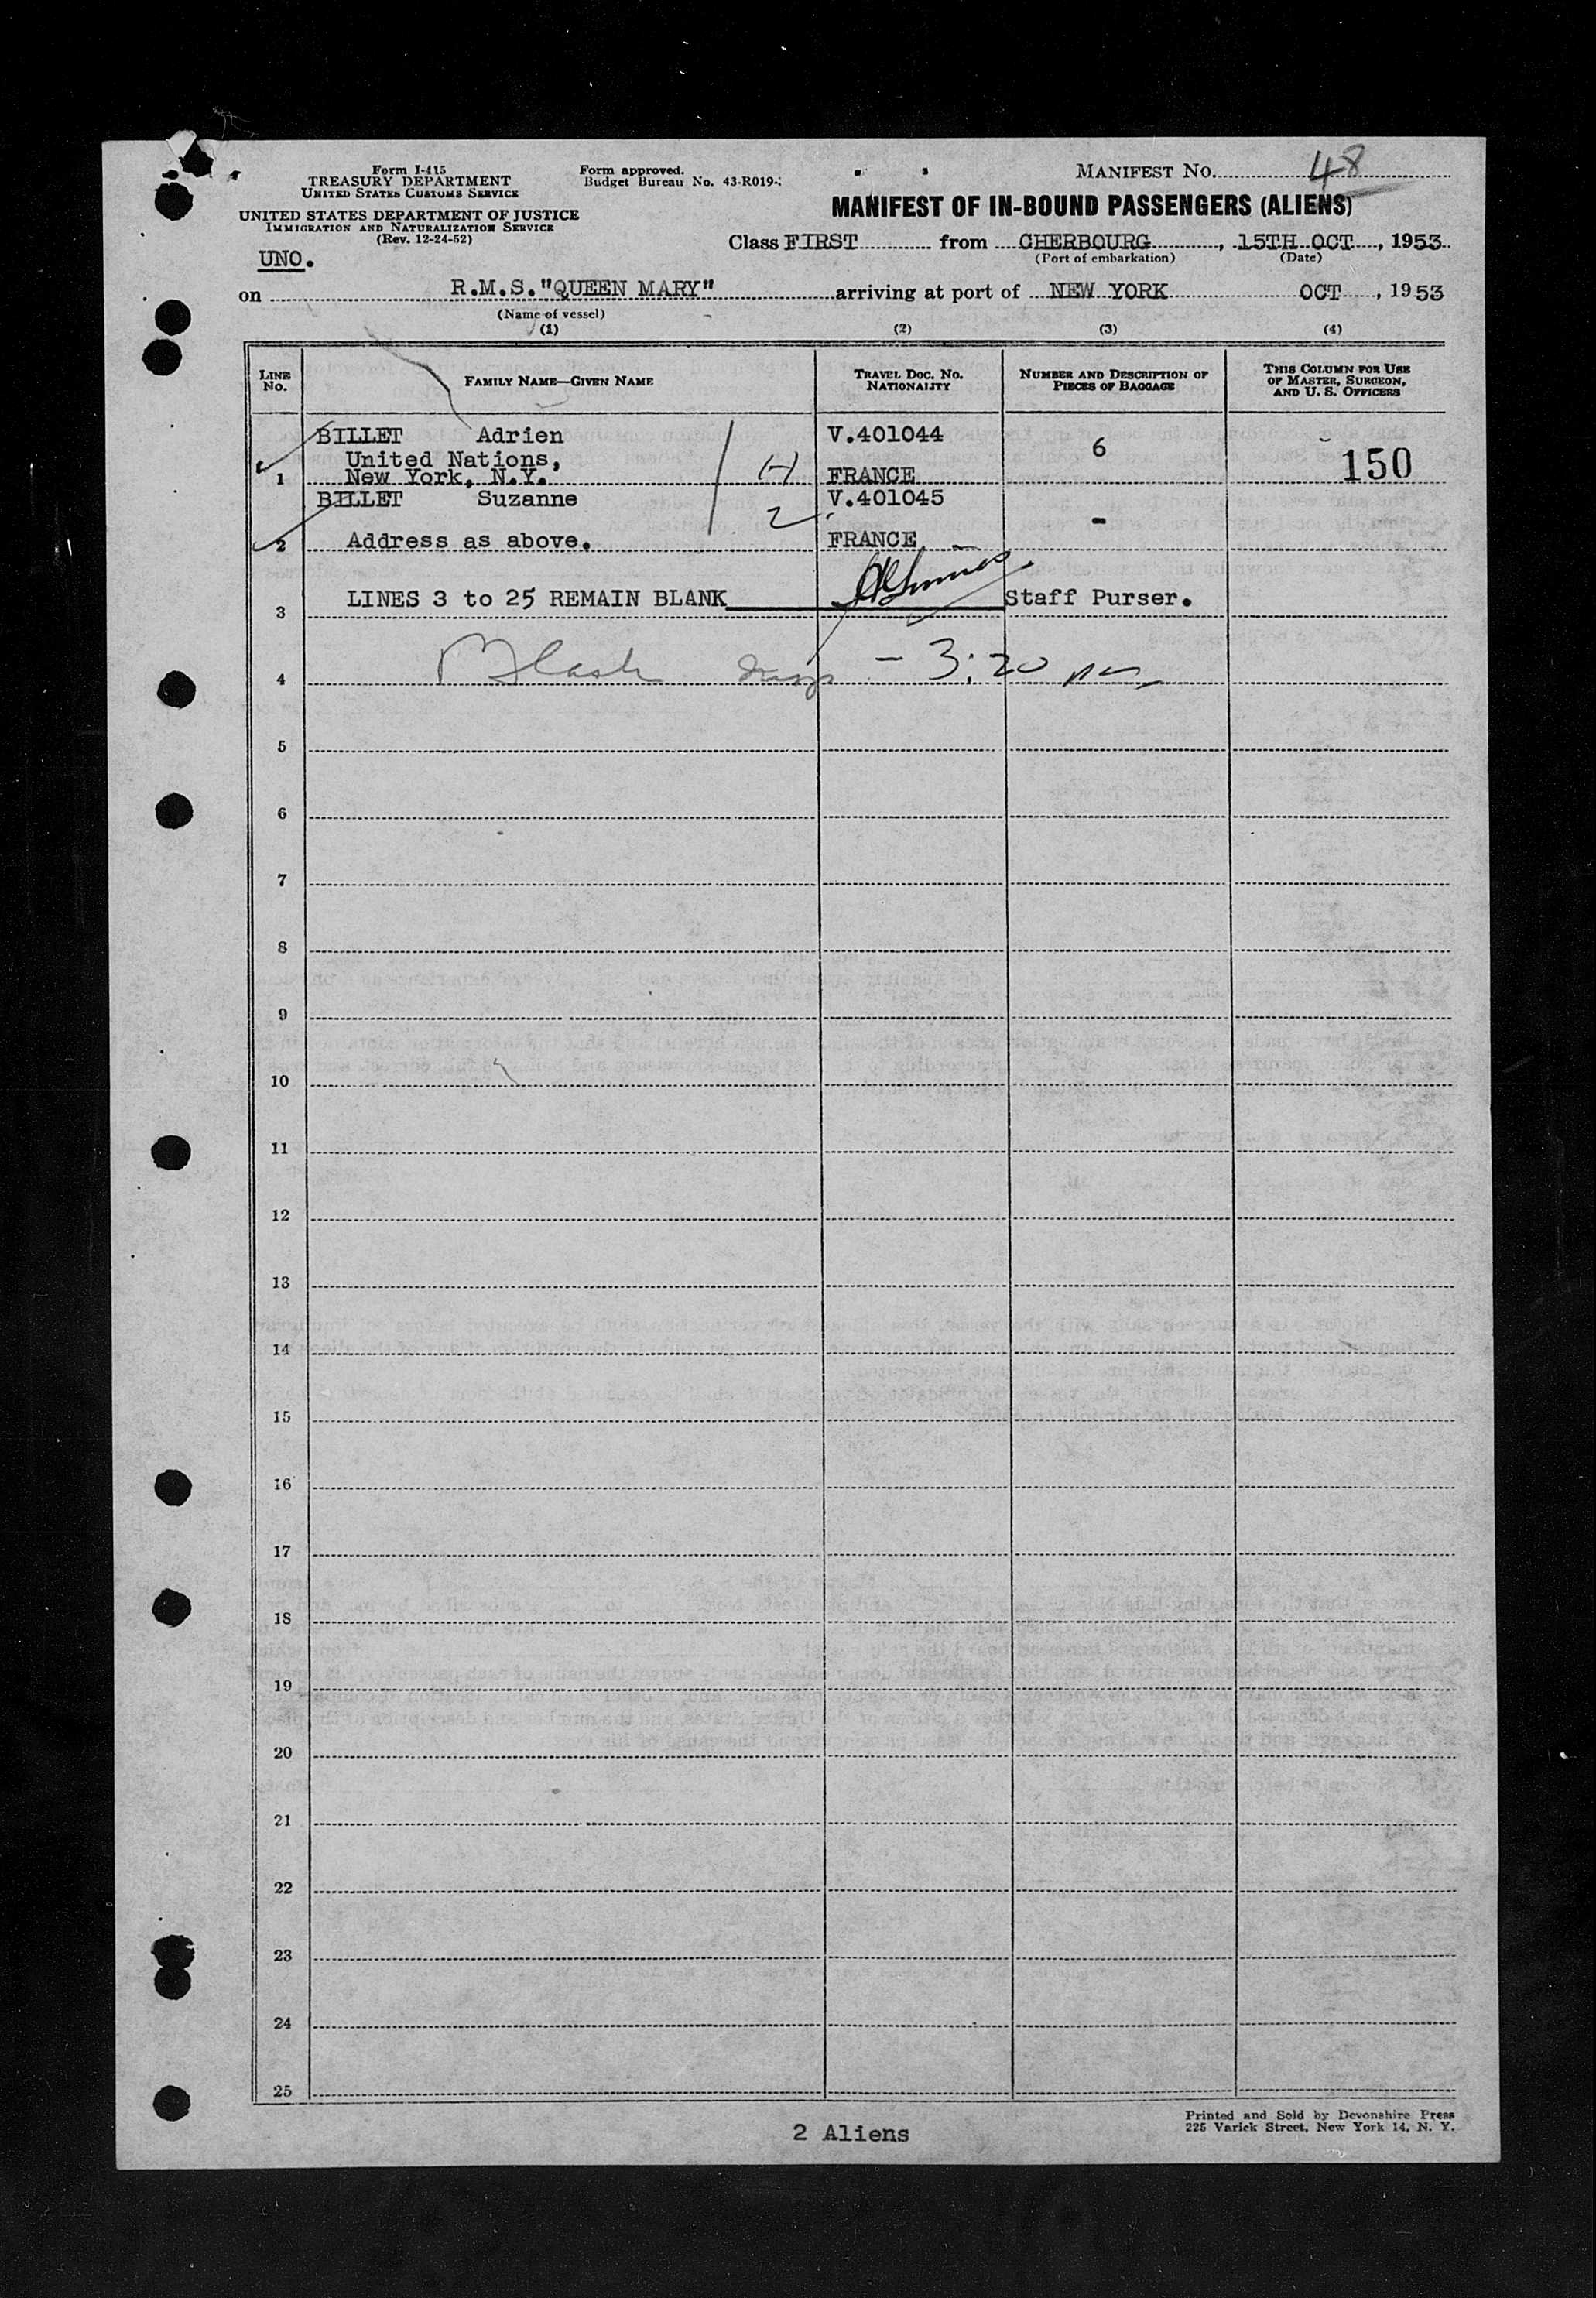 Form I-415
TREASURY DEPARTMENT
UNITED STATES CUSTOMS SERVICE
UNITED STATES DEPARTMENT OF JUSTICE
IMMIGRATION AND NATURALIZATION SERVICE
(Rev. 12-24-52)
UNO.
Form approved.
Budget Bureau No. 43-R019-
MANIFEST NO. 48
MANIFEST OF IN-BOUND PASSENGERS (ALIENS)
Class FIRST from CHERBOURG, 15TH OCT, 1953
(Port of embarkation) (Date)
on R.M.S."QUEEN MARY" arriving at port of NEW YORK OCT, 1953
(Name of vessel)
(1) (2) (3) (4)
LINE No. FAMILY NAME—GIVEN NAME TRAVEL DOC. NO. NATIONALITY NUMBER AND DESCRIPTION OF PIECES OF BAGGAGE THIS COLUMN FOR USE OF MASTER, SURGEON, AND U. S. OFFICERS
BILLET Adrien V.401044 6
United Nations, 150
1 New York, N.Y. FRANCE
BILLET Suzanne 2 V.401045 -
2 Address as above. FRANCE
3 LINES 3 to 25 REMAIN BLANK Staff Purser.
4 - 3:20 pm
5
6
7
8
9
10
11
12
13
14
15
16
17
18
19
20
21
22
23
24
25
2 Aliens
Printed and Sold by Devonshire Press
225 Varick Street, New York 14, N. Y.